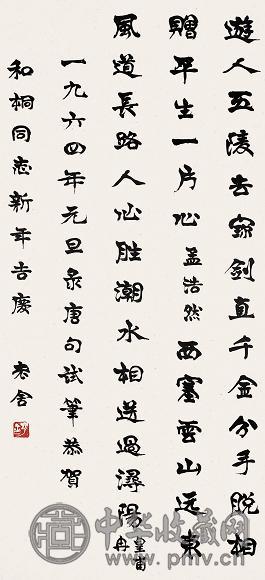 遊人五陵去寳劍直千金分手脫相
贈平生一片心 孟浩然 西塞雲山远東
風道長路人心胜潮水相送過潯陽 皇甫冉
一九六四年元旦录唐句試筆恭賀
和桐同志新年吉慶 老舍
中华收藏网
www.pmlv.cn